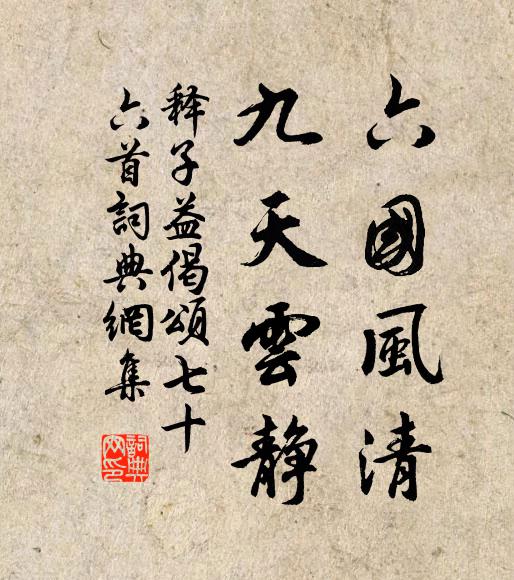 六國風清
九天雲静
释子益偈頌七十
六首詞典網集
詞典网印